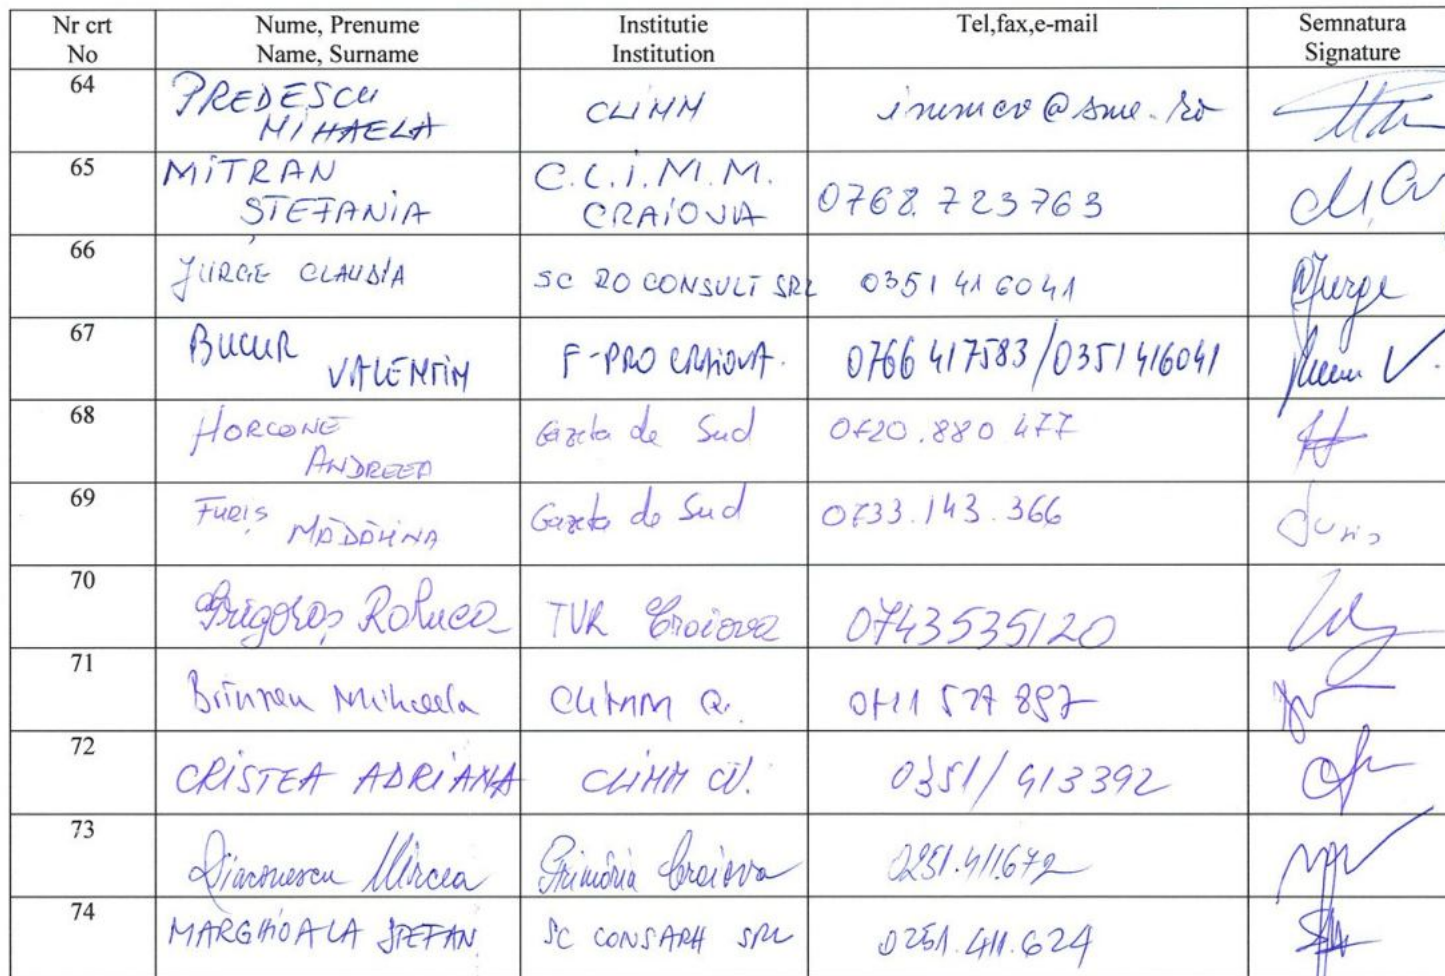 Nr crt
No
Nume, Prenume
Name, Surname
Institutie
Institution
Tel,fax,e-mail
Semnatura
Signature
64
PREDESCU
MIHAELA
CLIMM
immcv@sme.ro
65
MITRAN
ŞTEFANIA
C.L.I.M.M.
CRAIOVA
0768.723763
66
JURGE CLAUDIA
SC RO CONSULT SRL
0351 416041
Jurge
67
BUCUR
VALENTIN
F-PRO CRAIOVA.
0766 417583/0351416041
V.
68
ANDREEA
Gazeta de Sud
0720.880 477
69
FURIŞ
MĂDĂLINA
Gazeta de Sud
0733.143.366
Furiş
70
Grigoraş Raluca
TVR Craiova
0743535120
71
Mihaela
CLIMM
72
CRISTEA ADRIANA
CLIMM CV.
0351/413392
73
Diaconescu Mircea
Primăria Craiova
0251.411672
74
MARGHIOALA ŞTEFAN
SC CONSARH SRL
0251.411.624